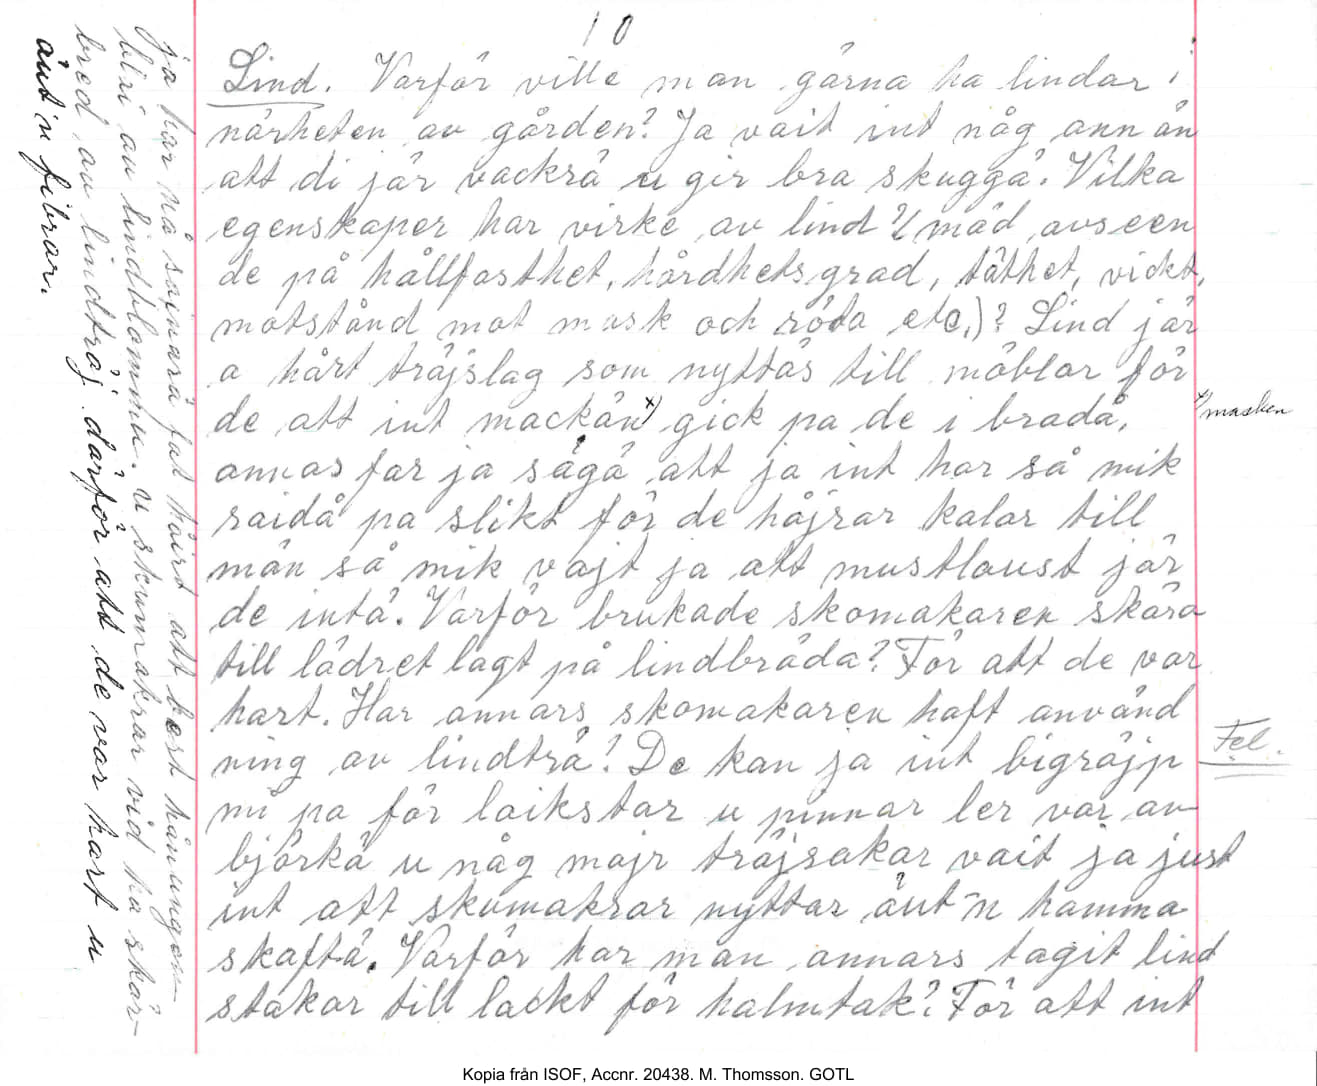 10
Lind. Varför ville man gärna ha lindar i
närheten av gården? Ja vait int någ ann än
att di jär vackrä u gir bra skuggä. Vilka
egenskaper har virke av lind? (mäd avseen
de på hållfasthet, hårdhetsgrad, täthet, vickt,
motstånd mot mask och röta etc.)? Lind jär
a hårt träjslag som nyttäs till möblar för
de att int mackän x) gick pa de i brädä,
annas far ja sägä att ja int har så mik
raidå pa slikt för de häjrar kalar till
män så mik vajt ja att mustlaust jär
de intä. Varför brukade skomakaren skära
till lädret lagt på lindbräda? För att de var
hart. Har annars skomakaren haft använd
ning av lindträ? De kan ja int bigräjp
mi pa för laikstar u pinnar ler var av
björkä u någ majr träjsakar vait ja just
int att skomakrar nyttar äut'n hamma
skaftä. Varför har man annars tagit lind
stakar till läckt för halmtak? För att int
x) masken
Fel.
ja har nå sainarä fat häirt att bäst hånungen
blri av lindblommu. u skummakrar vid ha skär-
bred av lindträj därför att de var hart u
äut'n fibrar.
Kopia från ISOF, Accnr. 20438. M. Thomsson. GOTL